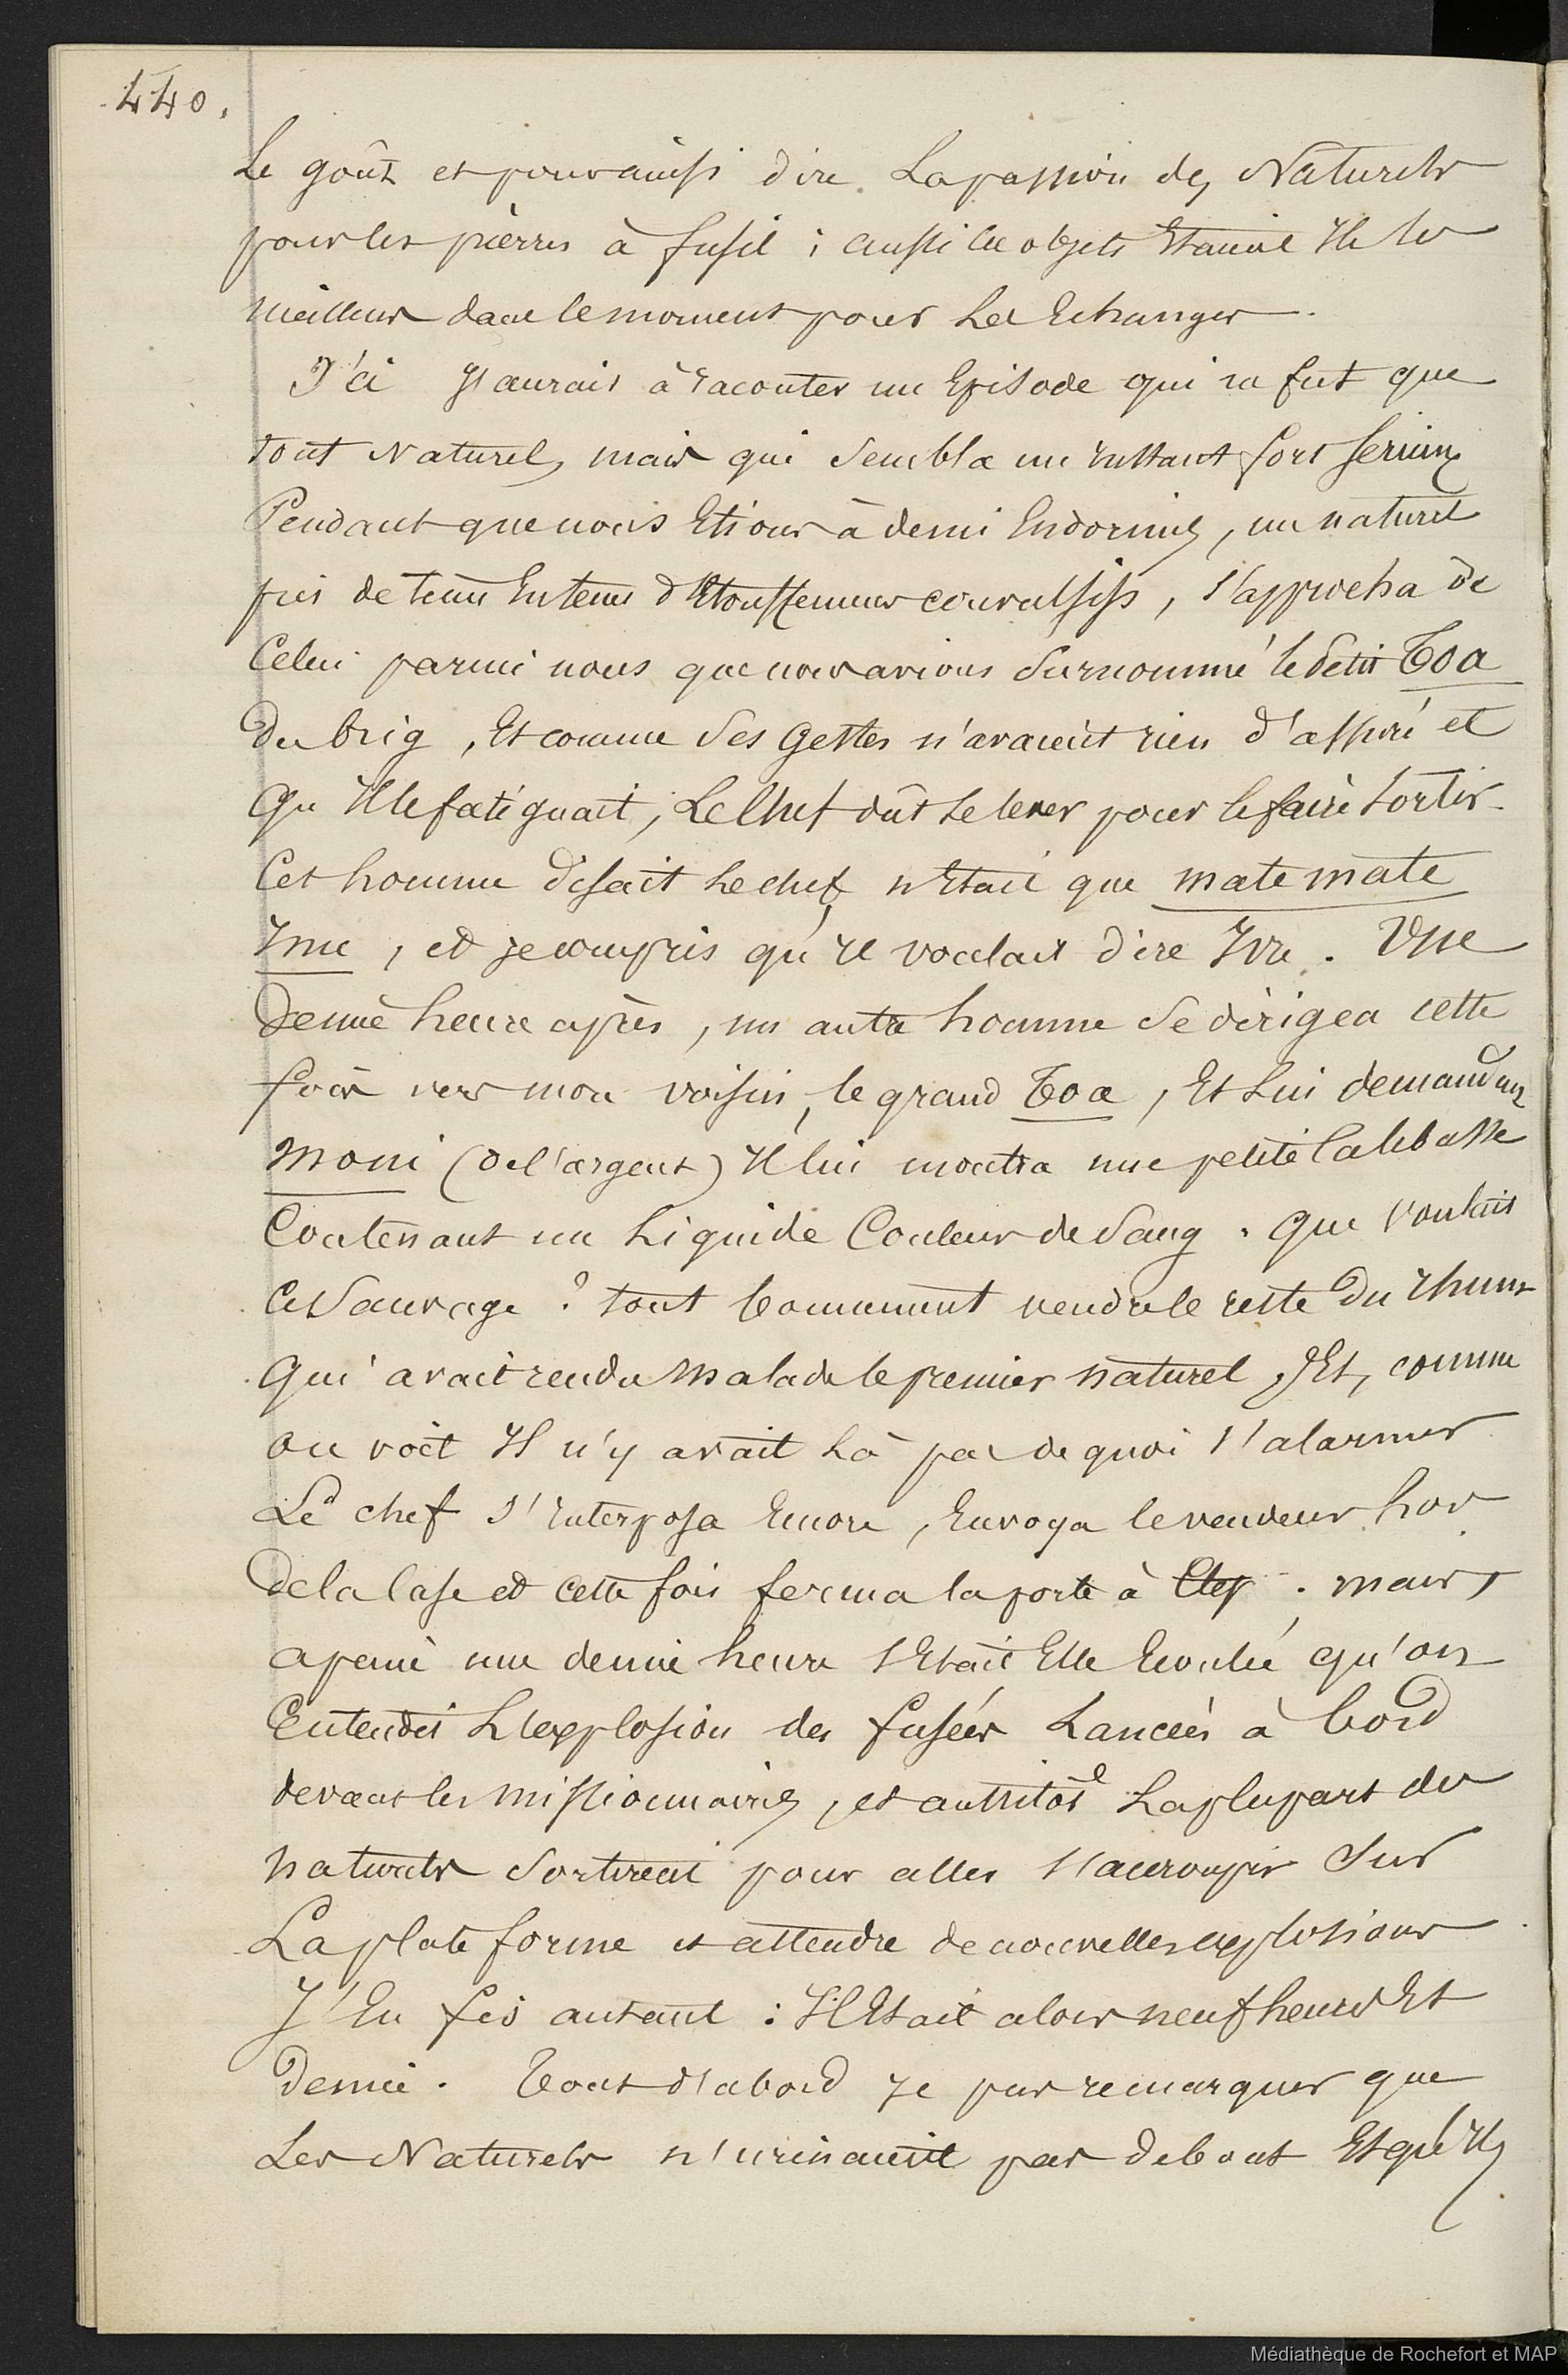 440.
Le goût et pour ainsi dire La passion des Naturels
pour les pièrres à fusil ; aussi ces objets Etaient Ils les
meilleurs dans le moment pour Les Echanger.
J'ci J'aurais à racouter un Episode qui ne fut que
tout Naturel, mais qui Sembla un instant fort Serieux
Pendant que nous Etions à demi Endormis, un naturel
pris de tems En tems d'Etouffemens convulsifs, s'approcha de
Celui parmi nous que nous avions Surnommé le petit Toa
Du brig, Et comme Ses Gestes n'avaient rien d'assuré et
Qu'Il le fatiguait, Le Chef dût Se lever pour le faire Sortir.
Cet homme disait Le chef, n'Etait que mate mate
, et je compris qu'Il voulait dire Ivre. Une
Demie heure après, un autre homme Se dirigea cette
fois vers mon voisin, le grand Toa, Et Lui demandant
Moni (de l'argent) Il lui montra une petite Calebasse
Contenant un Liquide Couleur de Sang. Que voulait
Ce Sauvage ? tout bonnement vendre le reste Du rhum
Qui avait rendu Malade le premier naturel, Et, comme
on voit Il n'y avait Là pas de quoi s'alarmer
Le chef s'Interposa Encore, Envoya le vendeur hors
De la Case et Cette fois ferma la porte à Clef. mais,
apeine une demie heure s'Etait Elle Ecoulée qu'on
Entendit L'explosion des fusées Lancées à bord
devant les Missionnaires, et aussitôt La plupart des
naturels Sortirent pour aller s'accroupir Sur
La plate forme et attendre de nouvelles explosions
J'En fis autant : Il Etait alors neuf heures Et
Demie. Tout d'abord Je pus remarquer que
Les Naturels n'urinaient pas debout Et qu'Ils
Médiathèque de Rochefort et MAP